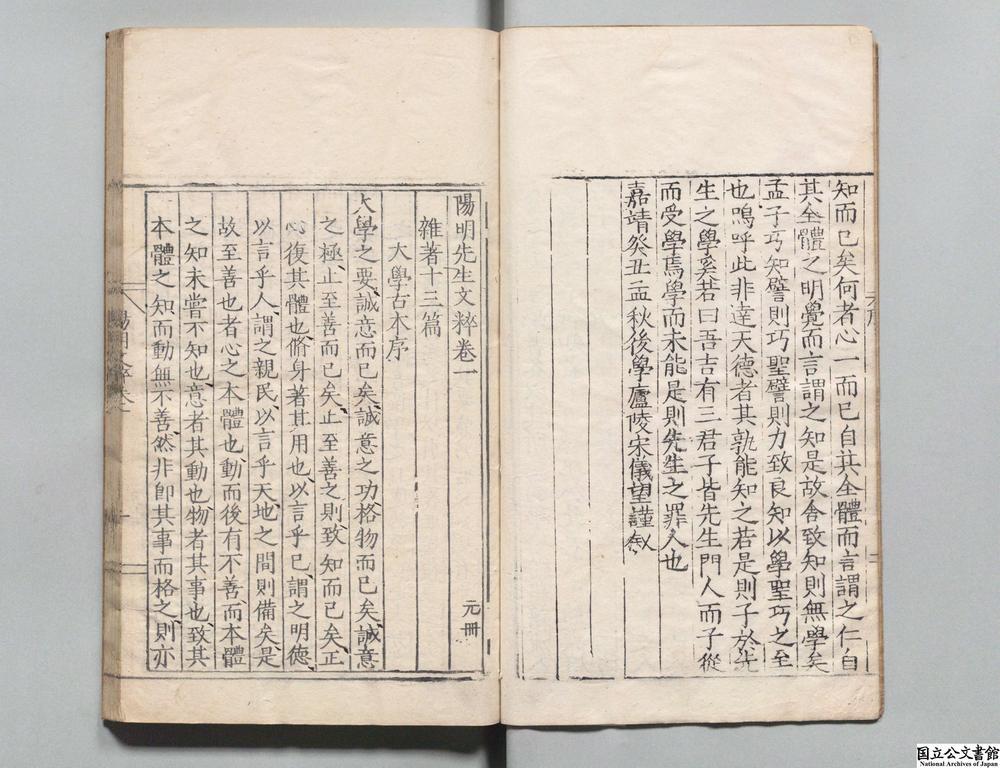 知而已矣何者心一而已自其全體而言謂之仁自
其全體之明覺而言謂之知是故舍致知則無學矣
孟子巧知譬則巧聖譬則力致良知以學聖巧之至
也嗚呼此非達天德者其孰能知之若是則子於先
生之學奚若曰吾吉有三君子皆先生門人而子從
而受學焉學而未能是則先生之罪人也
嘉靖癸丑孟秋後學廬陵宋儀望謹敘
陽明先生文粹卷一 元冊
雜著十三篇
大學古本序
大學之要誠意而已矣誠意之功格物而已矣誠意
之極止至善而已矣止至善之則致知而已矣正
心復其體也脩身著其用也以言乎已謂之明德
以言乎人謂之親民以言乎天地之間則備矣是
故至善也者心之本體也動而後有不善而本體
之知未嘗不知也意者其動也物者其事也致其
本體之知而動無不善然非卽其事而格之則亦
陽明文粹卷一
一
国立公文書館
National Archives of Japan